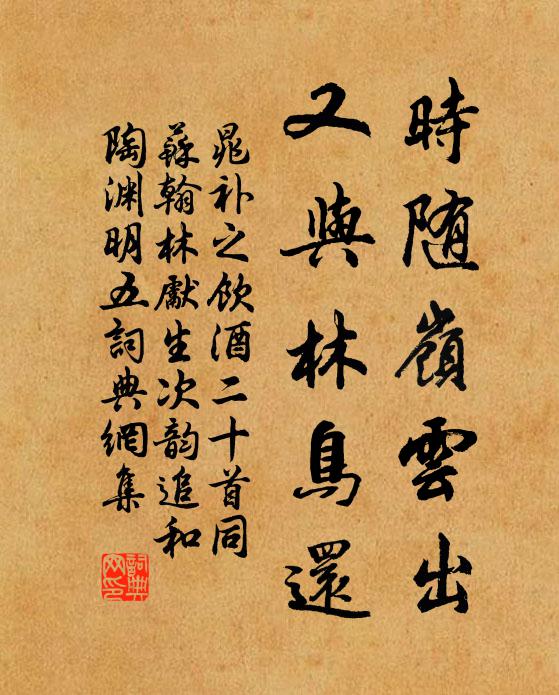 時随嶺雲出
又與林鳥還
晁补之饮酒二十首同
蘇翰林獻生次韵追和
陶渊明五詞典網集
詞典
网印